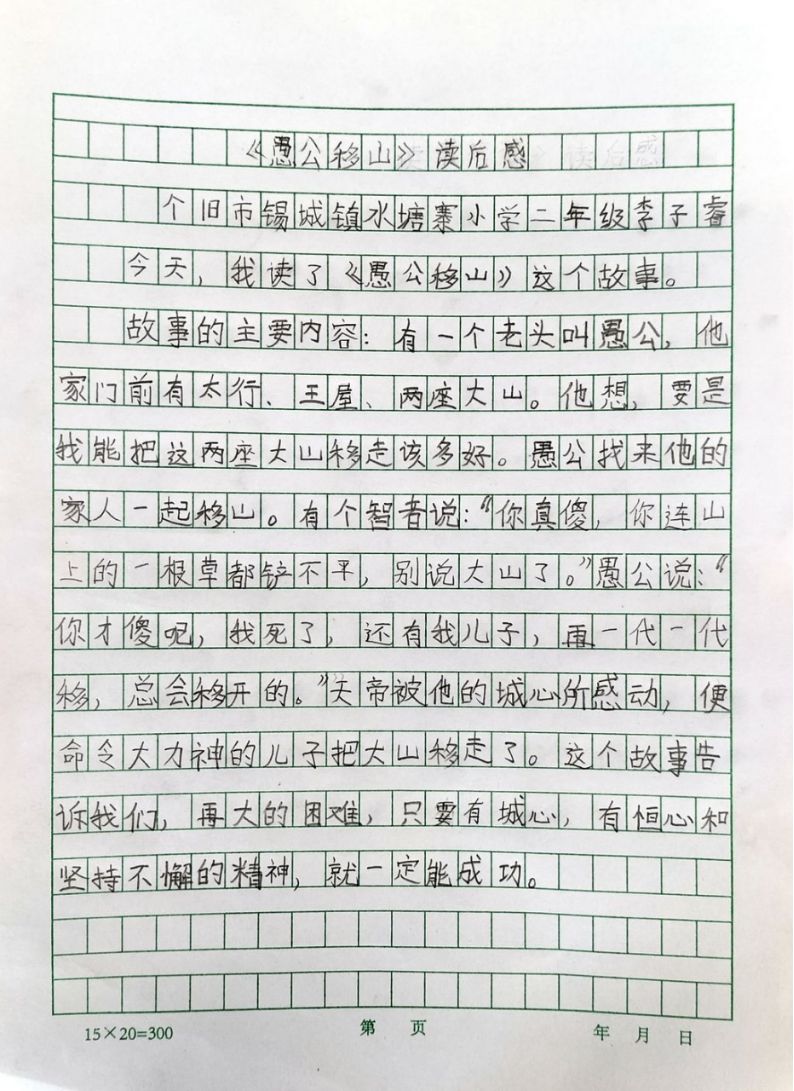 《愚公移山》读后感
个旧市锡城镇水塘寨小学二年级李子睿
今天，我读了《愚公移山》这个故事。
故事的主要内容：有一个老头叫愚公，他
家门前有太行、王屋、两座大山。他想，要是
我能把这两座大山移走该多好。愚公找来他的
家人一起移山。有个智者说：“你真傻，你连山
上的一根草都铲不平，别说大山了。”愚公说：“
你才傻呢，我死了，还有我儿子，再一代一代
移，总会移开的。”天帝被他的城心所感动，便
命令大力神的儿子把大山移走了。这个故事告
诉我们，再大的困难，只要有城心，有恒心和
坚持不懈的精神，就一定能成功。
15×20=300 第 页 年 月 日